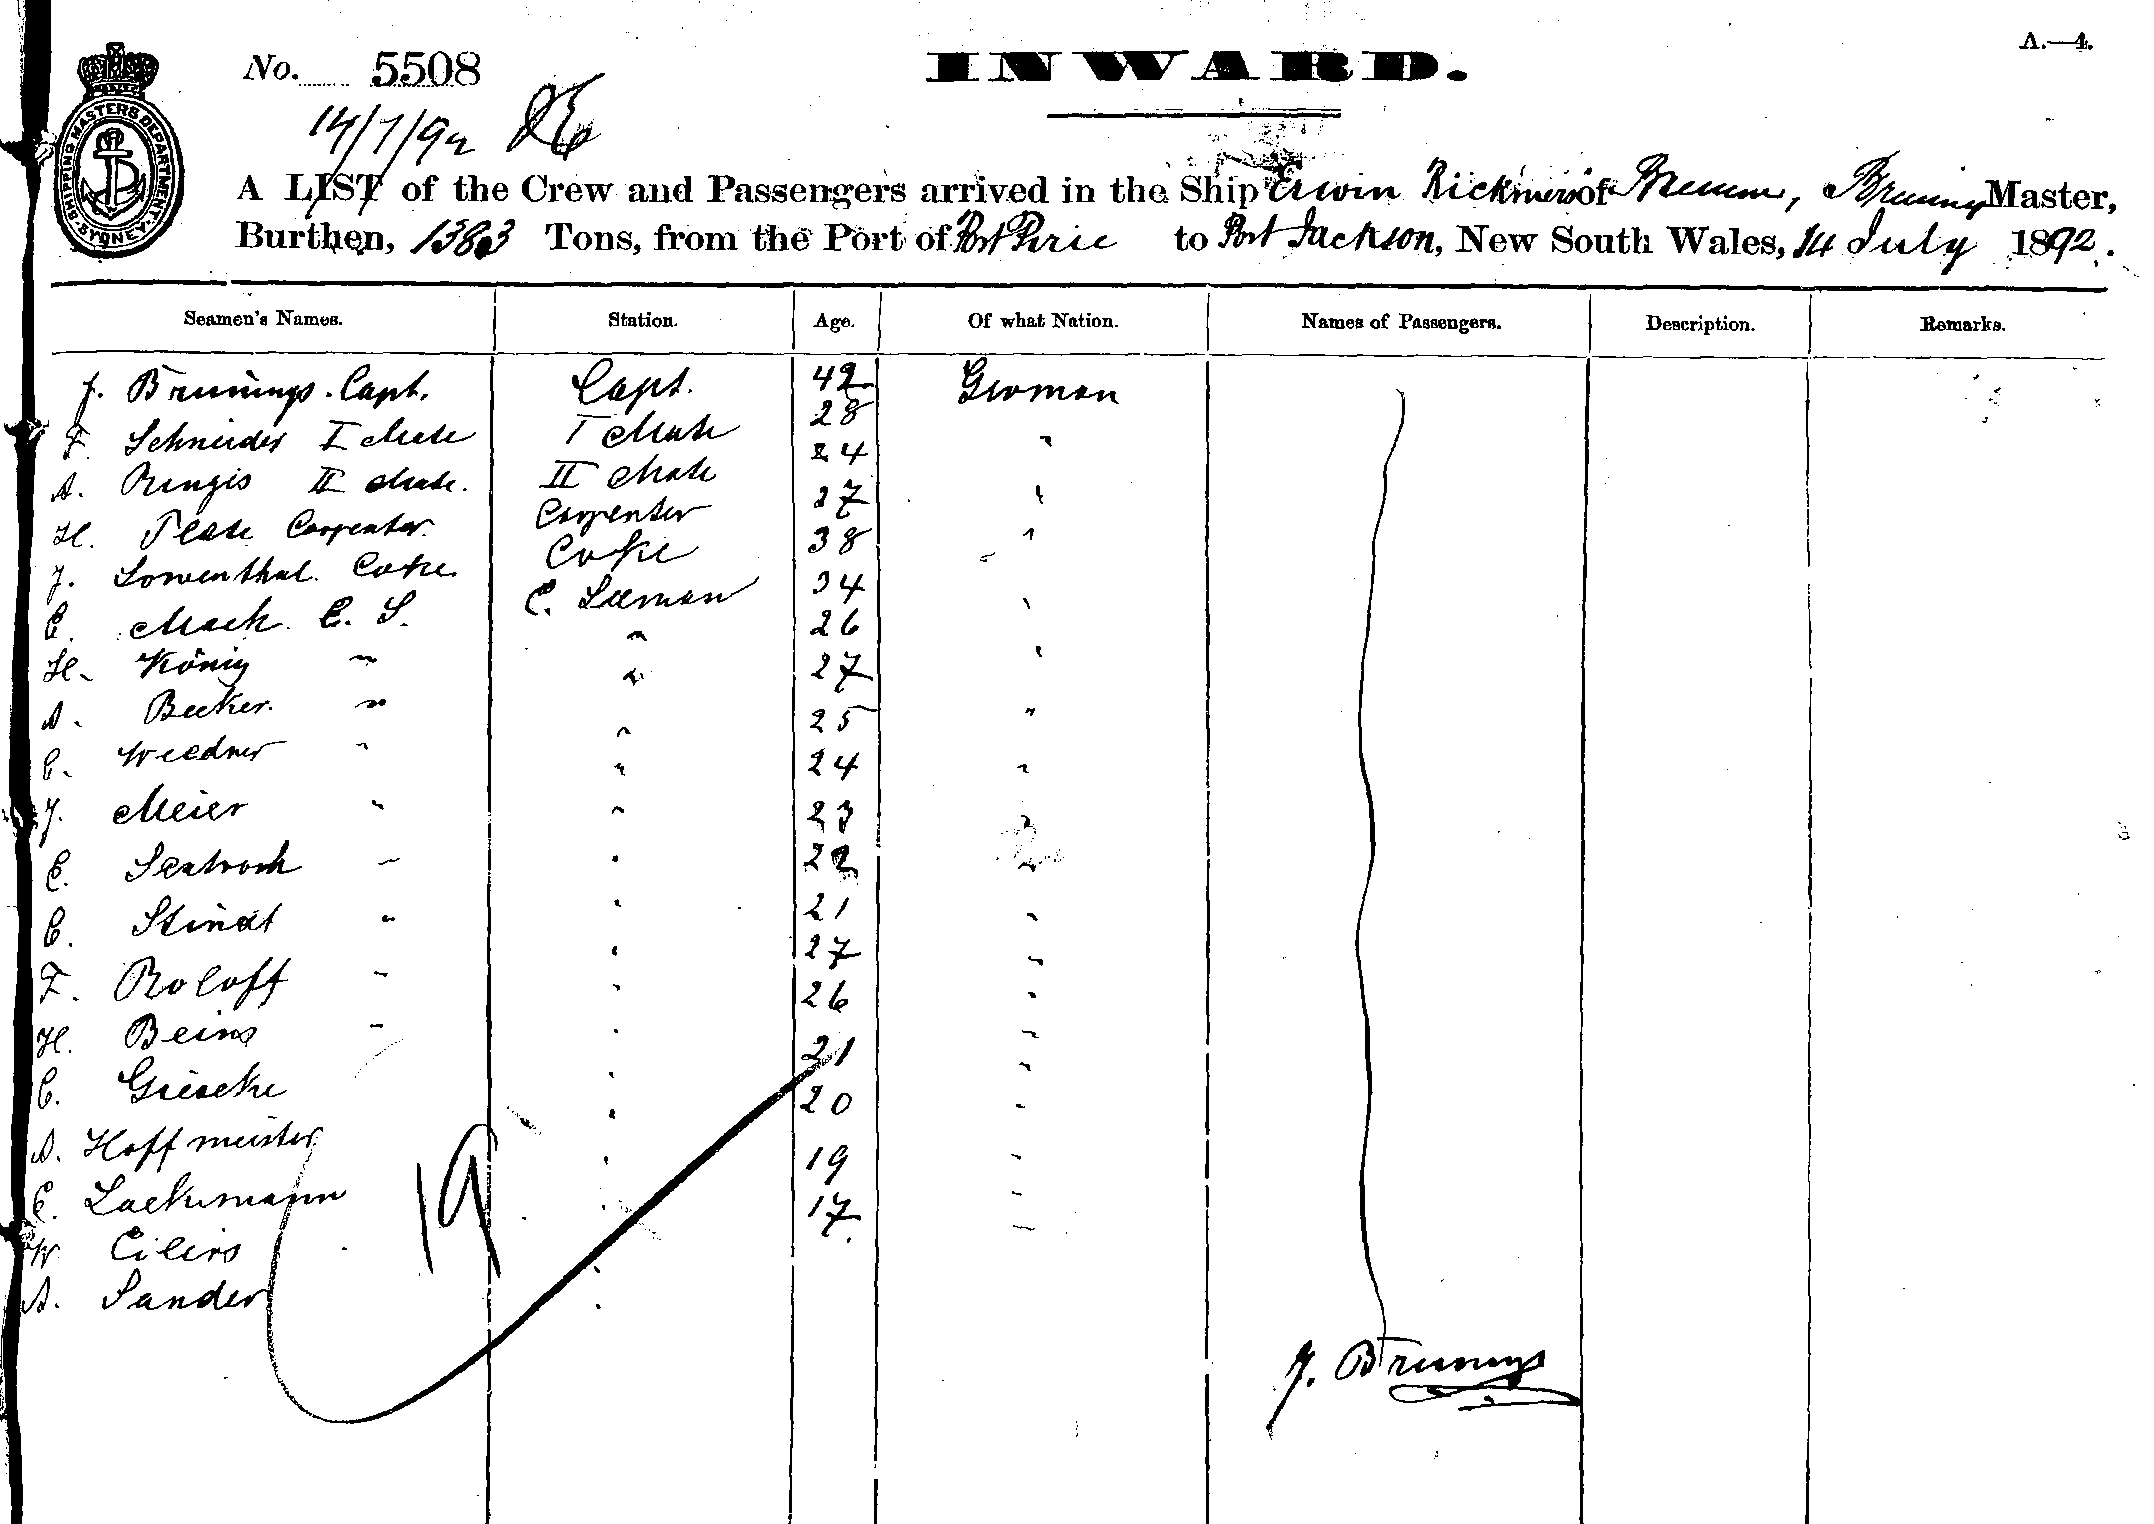 A.—4.
No. 5508
INWARD.
14/7/92
SHIPPING MASTERS DEPARTMENT SYDNEY
A LIST of the Crew and Passengers arrived in the Ship Erwin Rickmers of Bremen, Brunings Master,
Burthen, 1383 Tons, from the Port of Port Pirie to Port Jackson, New South Wales, 14 July 1892.
Seamen's Names. Station. Age. Of what Nation. Names of Passengers. Description. Remarks.
J. Brunings. Capt. Capt. 42 German
F. Schneider I Mate I Mate 28 "
A. II Mate. II Mate 24 "
H. Carpenter. Carpenter 27 "
J. Lowenthal. Coke. Coke 38 "
C. Mack. E. S. E. Seeman 34 "
H. König " " 26 "
A. Becker. " " 27 "
C. Weedner " " 25 "
J. Meier " " 24 "
C. " " 23 "
C. Stindt " " 22 "
F. Roloff " " 21 "
H. Beins " " 27 "
C. Giesecke " 26 "
A. Hoffmeister " 21 "
C. Lackemann " 20 "
W. Eilers " 19 "
A. Sander " 17. "
19
J. Brunings